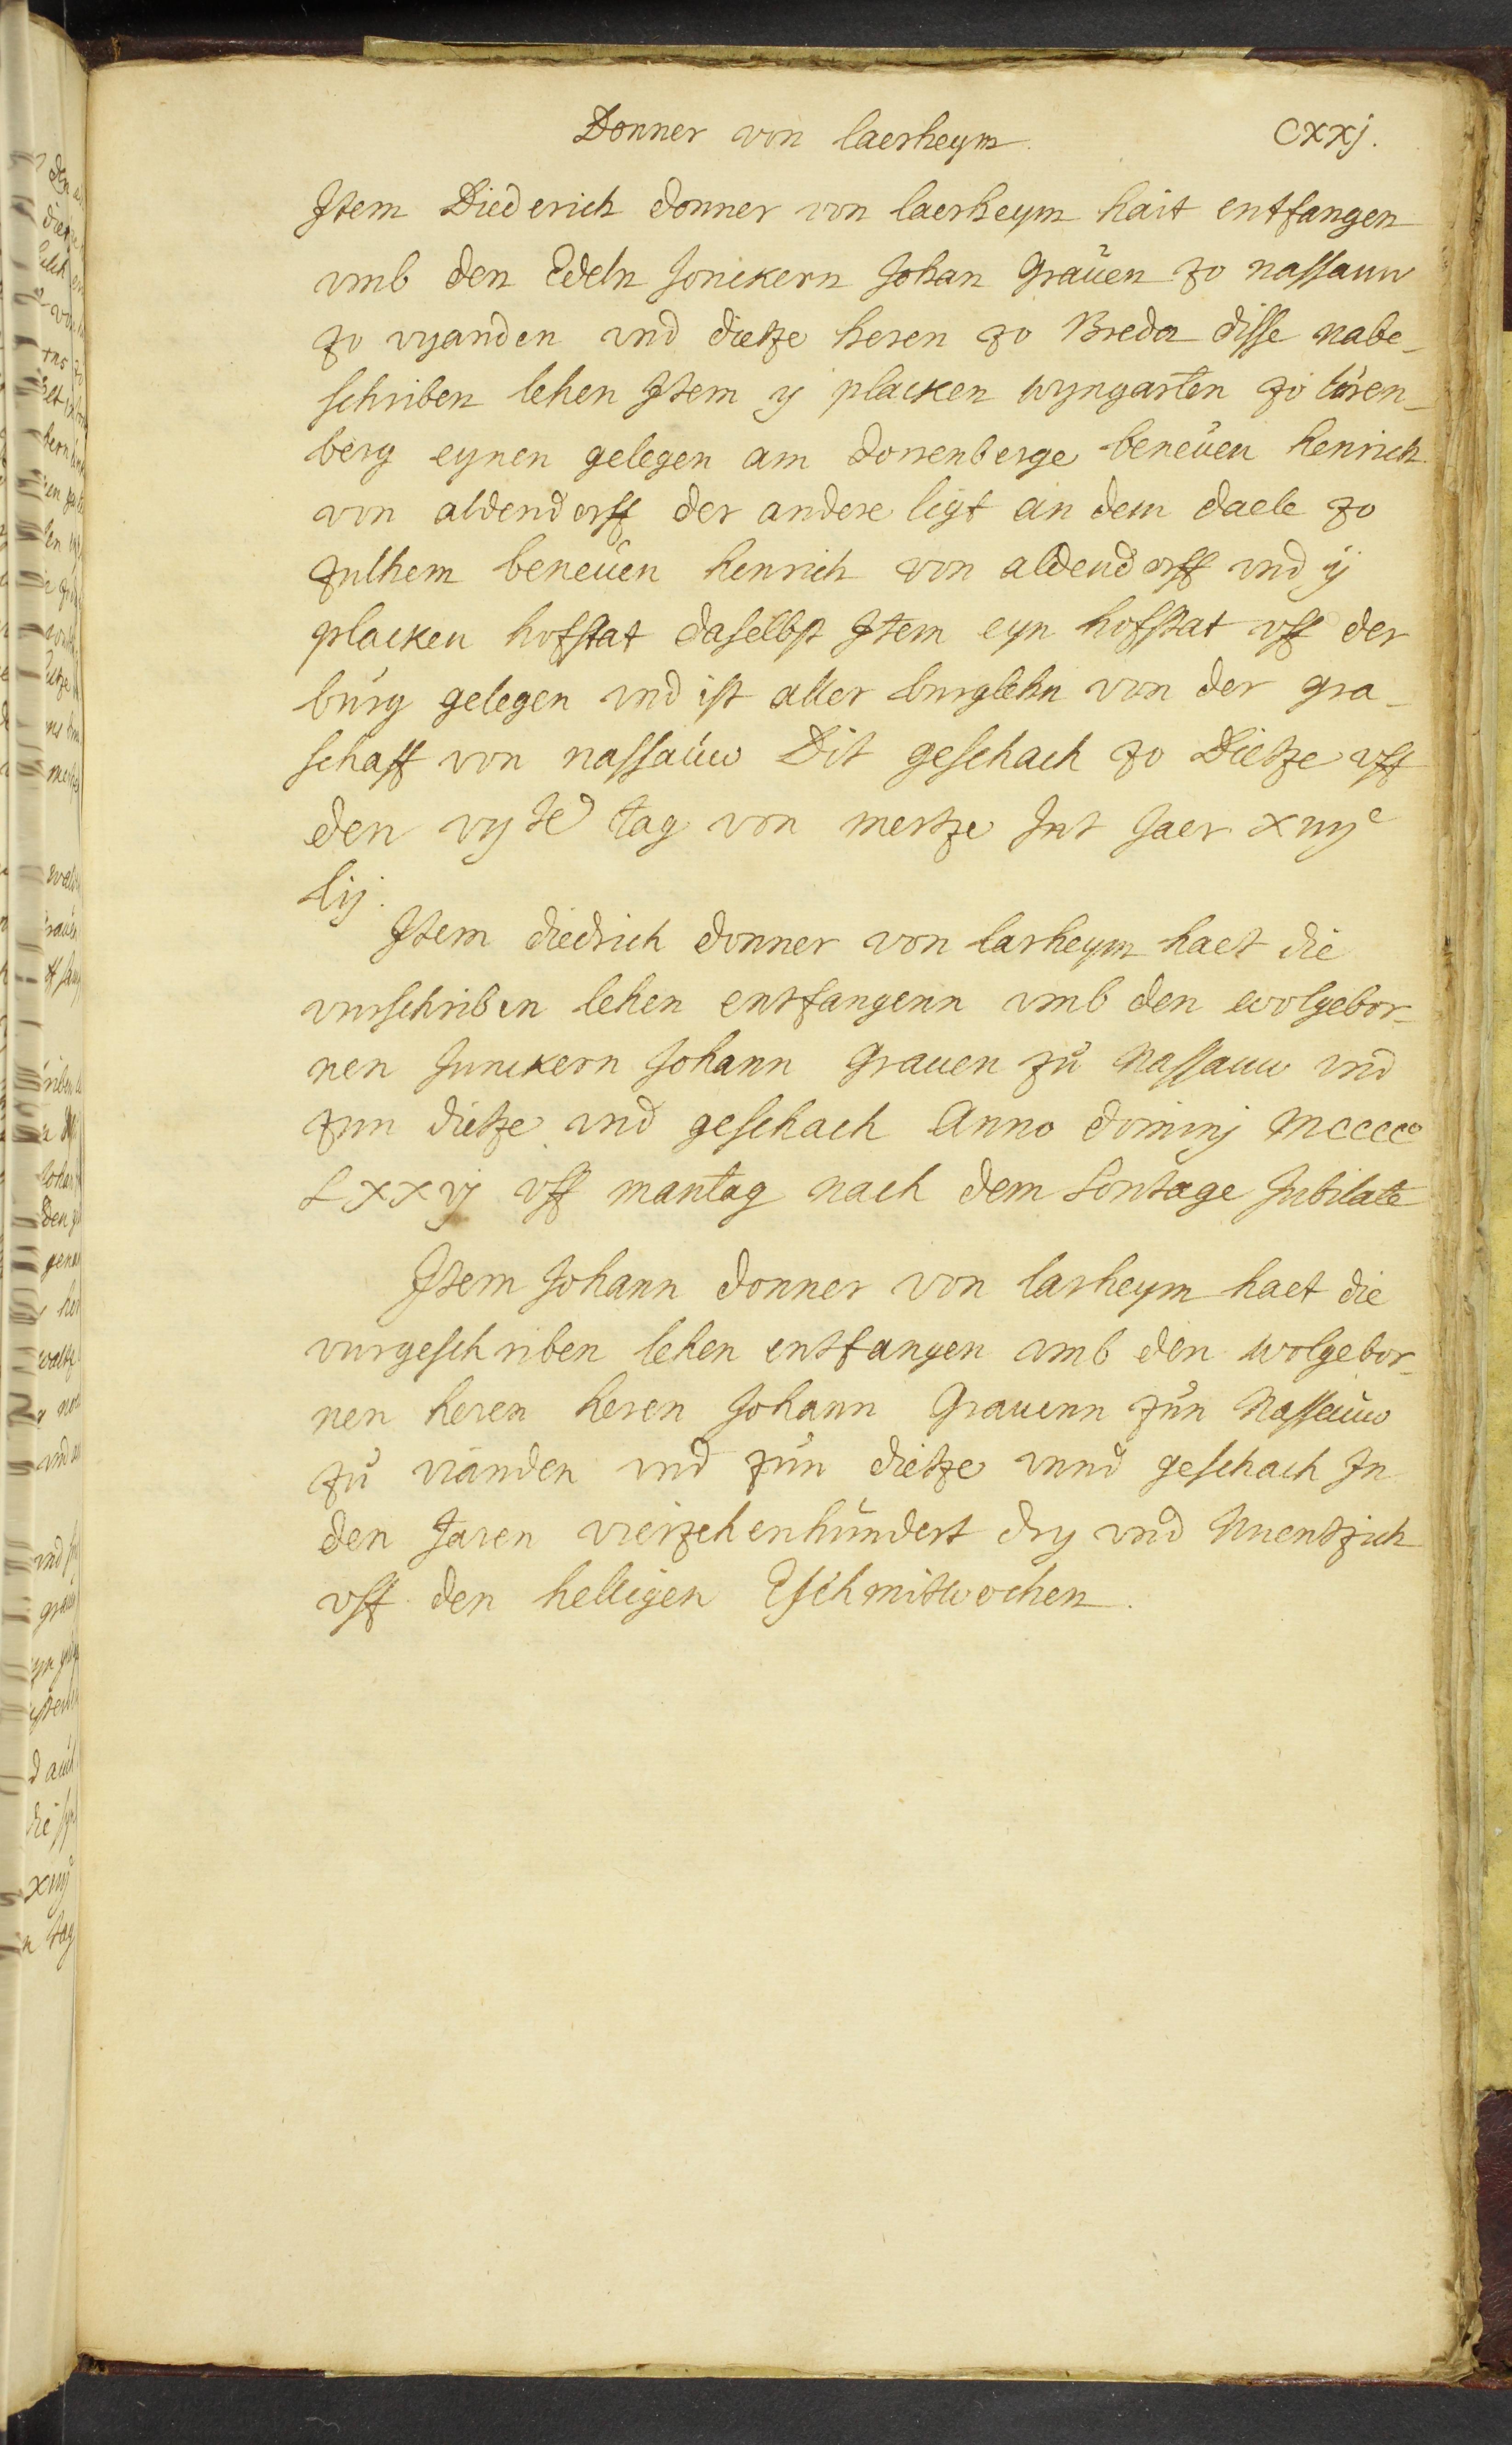 Donner von laerheym. Cxxj.
Item Diederich donner von laerheym hait entfangen
vmb den Edeln Jonckern Johan Grauen zo nassauw
zo vyanden vnd dietze heren zo Breda disse nabe-
schriben lehen Item ij placken wyngarten zo lúren-
berg eynen gelegen am dorrenberge beneuen henrich
von aldendorff der andere ligt an dem daele zo
zulhem beneuen henrich von aldendorff vnd ij
placken hofstat daselbst Item eyn hofstat vff der
burg gelegen vnd ist aller burglehn von der gra-
schaff von nassauw Dit geschach zo Dietze vff
den vijte tag von mertze Int Jaer xiiijc
lij.
Item diedrich donner von larheym haet die
vurschriben lehen entfangenn vmb den wolgebor-
nen Junckern Johann Grauen zu Nassauw vnd
zun dietze vnd geschach Anno dominj Mcccco
Lxxvj vff mantag nach dem Sontage Jubilate
Item Johann donner von larheym haet die
vurgeschriben lehen entfangen vmb den wolgebor-
nen heren heren Johann Grauenn zun Nassauw
zu vianden vnd zun dietze vnnd geschach In
den Jaren vierzehenhundert dry vnd Nuentzich
vff den helligen Eschmitwochen.